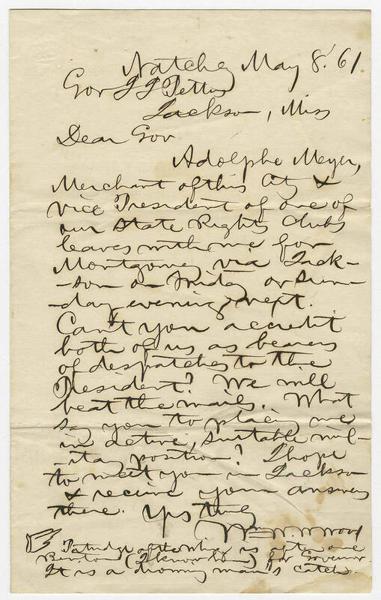 Natchez May 8. 61
Gov J J Pettus
Jackson, Miss
Dear Gov
Adolphe Meyer,
Merchant of this City &
Vice President of one of
our State Rights Clubs
leaves with me for
Montgomery via Jack-
-son on Friday or Sun-
-day evening next.
Can't you accredit
both of us as bearers
of despatches to the
President? We will
beat the mails. What
say you to place me
in active, suitable mil-
-itary position? I hope
to meet you in Jackson
& receive your answer
there. Yrs truly
Wood
is after one
(I know him) for Governor.
It is a drowning man's catch.